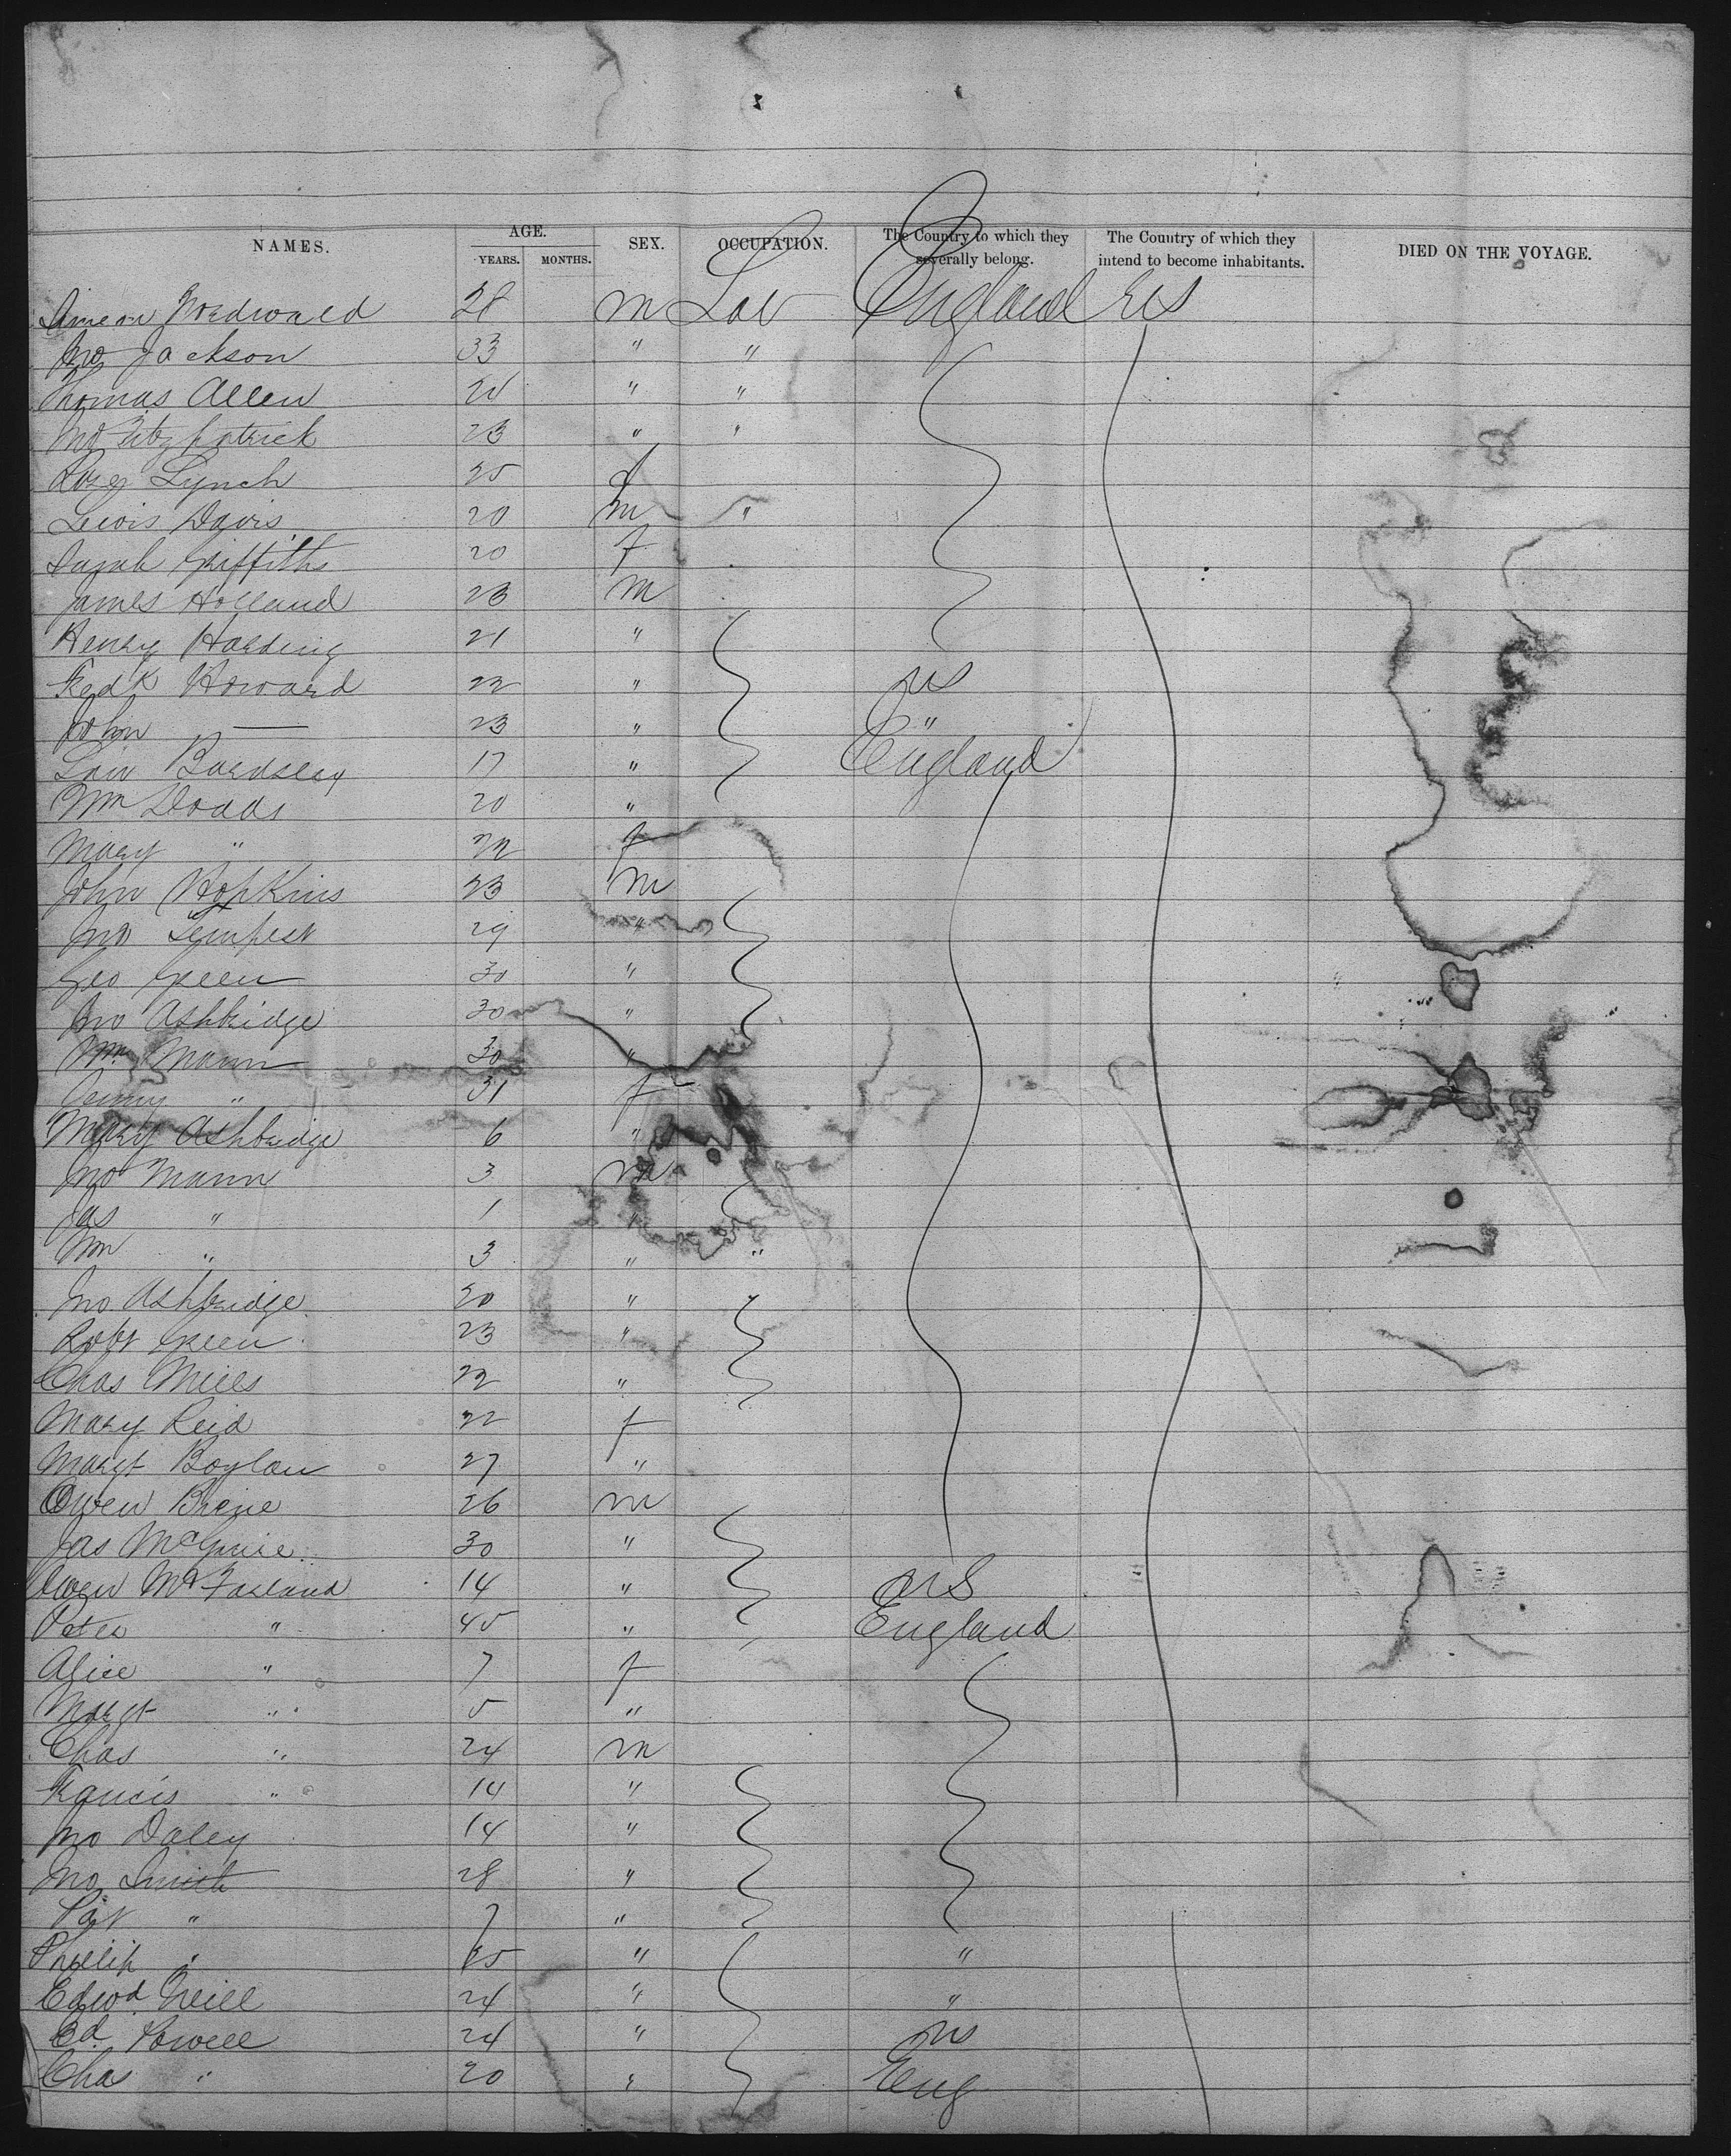 NAMES. AGE. YEARS. MONTHS. SEX. OCCUPATION. The Country to which they severally belong. The Country of which they intend to become inhabitants. DIED ON THE VOYAGE.
28 m Lab England US
Jno Jackson 33 " "
Thomas Allen 24 " "
Jno Fitzpatrick 23 " "
Lynch 25 f
Lewis Davis 20 m "
Sarah Griffiths 20 f
James Holland 23 m
Henry Harding 21 "
Fredk Howard 22 " US
John — 23 " "
Bardsley 17 " England
Wm Dodds 20 "
Mary " 22 f
John Hopkins 23 m
Jno Tempest 29 "
Geo Green 30 "
Jno Ashbridge 30 "
Wm Mann 30 "
" 31 f
Mary Ashbridge 6 "
Jno Mann 3 m
Jas " 1 "
Wm " 3 " "
Jno Ashbridge 20 "
Robt Green 23 "
Chas Mills 22 "
Mary Reid 22 f
Margt Boylan 27 "
Owen 26 m
Jas McGuire 30 "
Owen McFarland 14 " US
Peter " 45 " England
Alice " 7 f
Margt " 5 "
Chas " 24 m
Francis " 14 "
Jno Daley 14 "
Jno Smith 28 "
Pat " 7 "
Phillip " " "
Edwd Neill 24 " "
Ed. Powell 24 " US
Chas " 20 " Eng